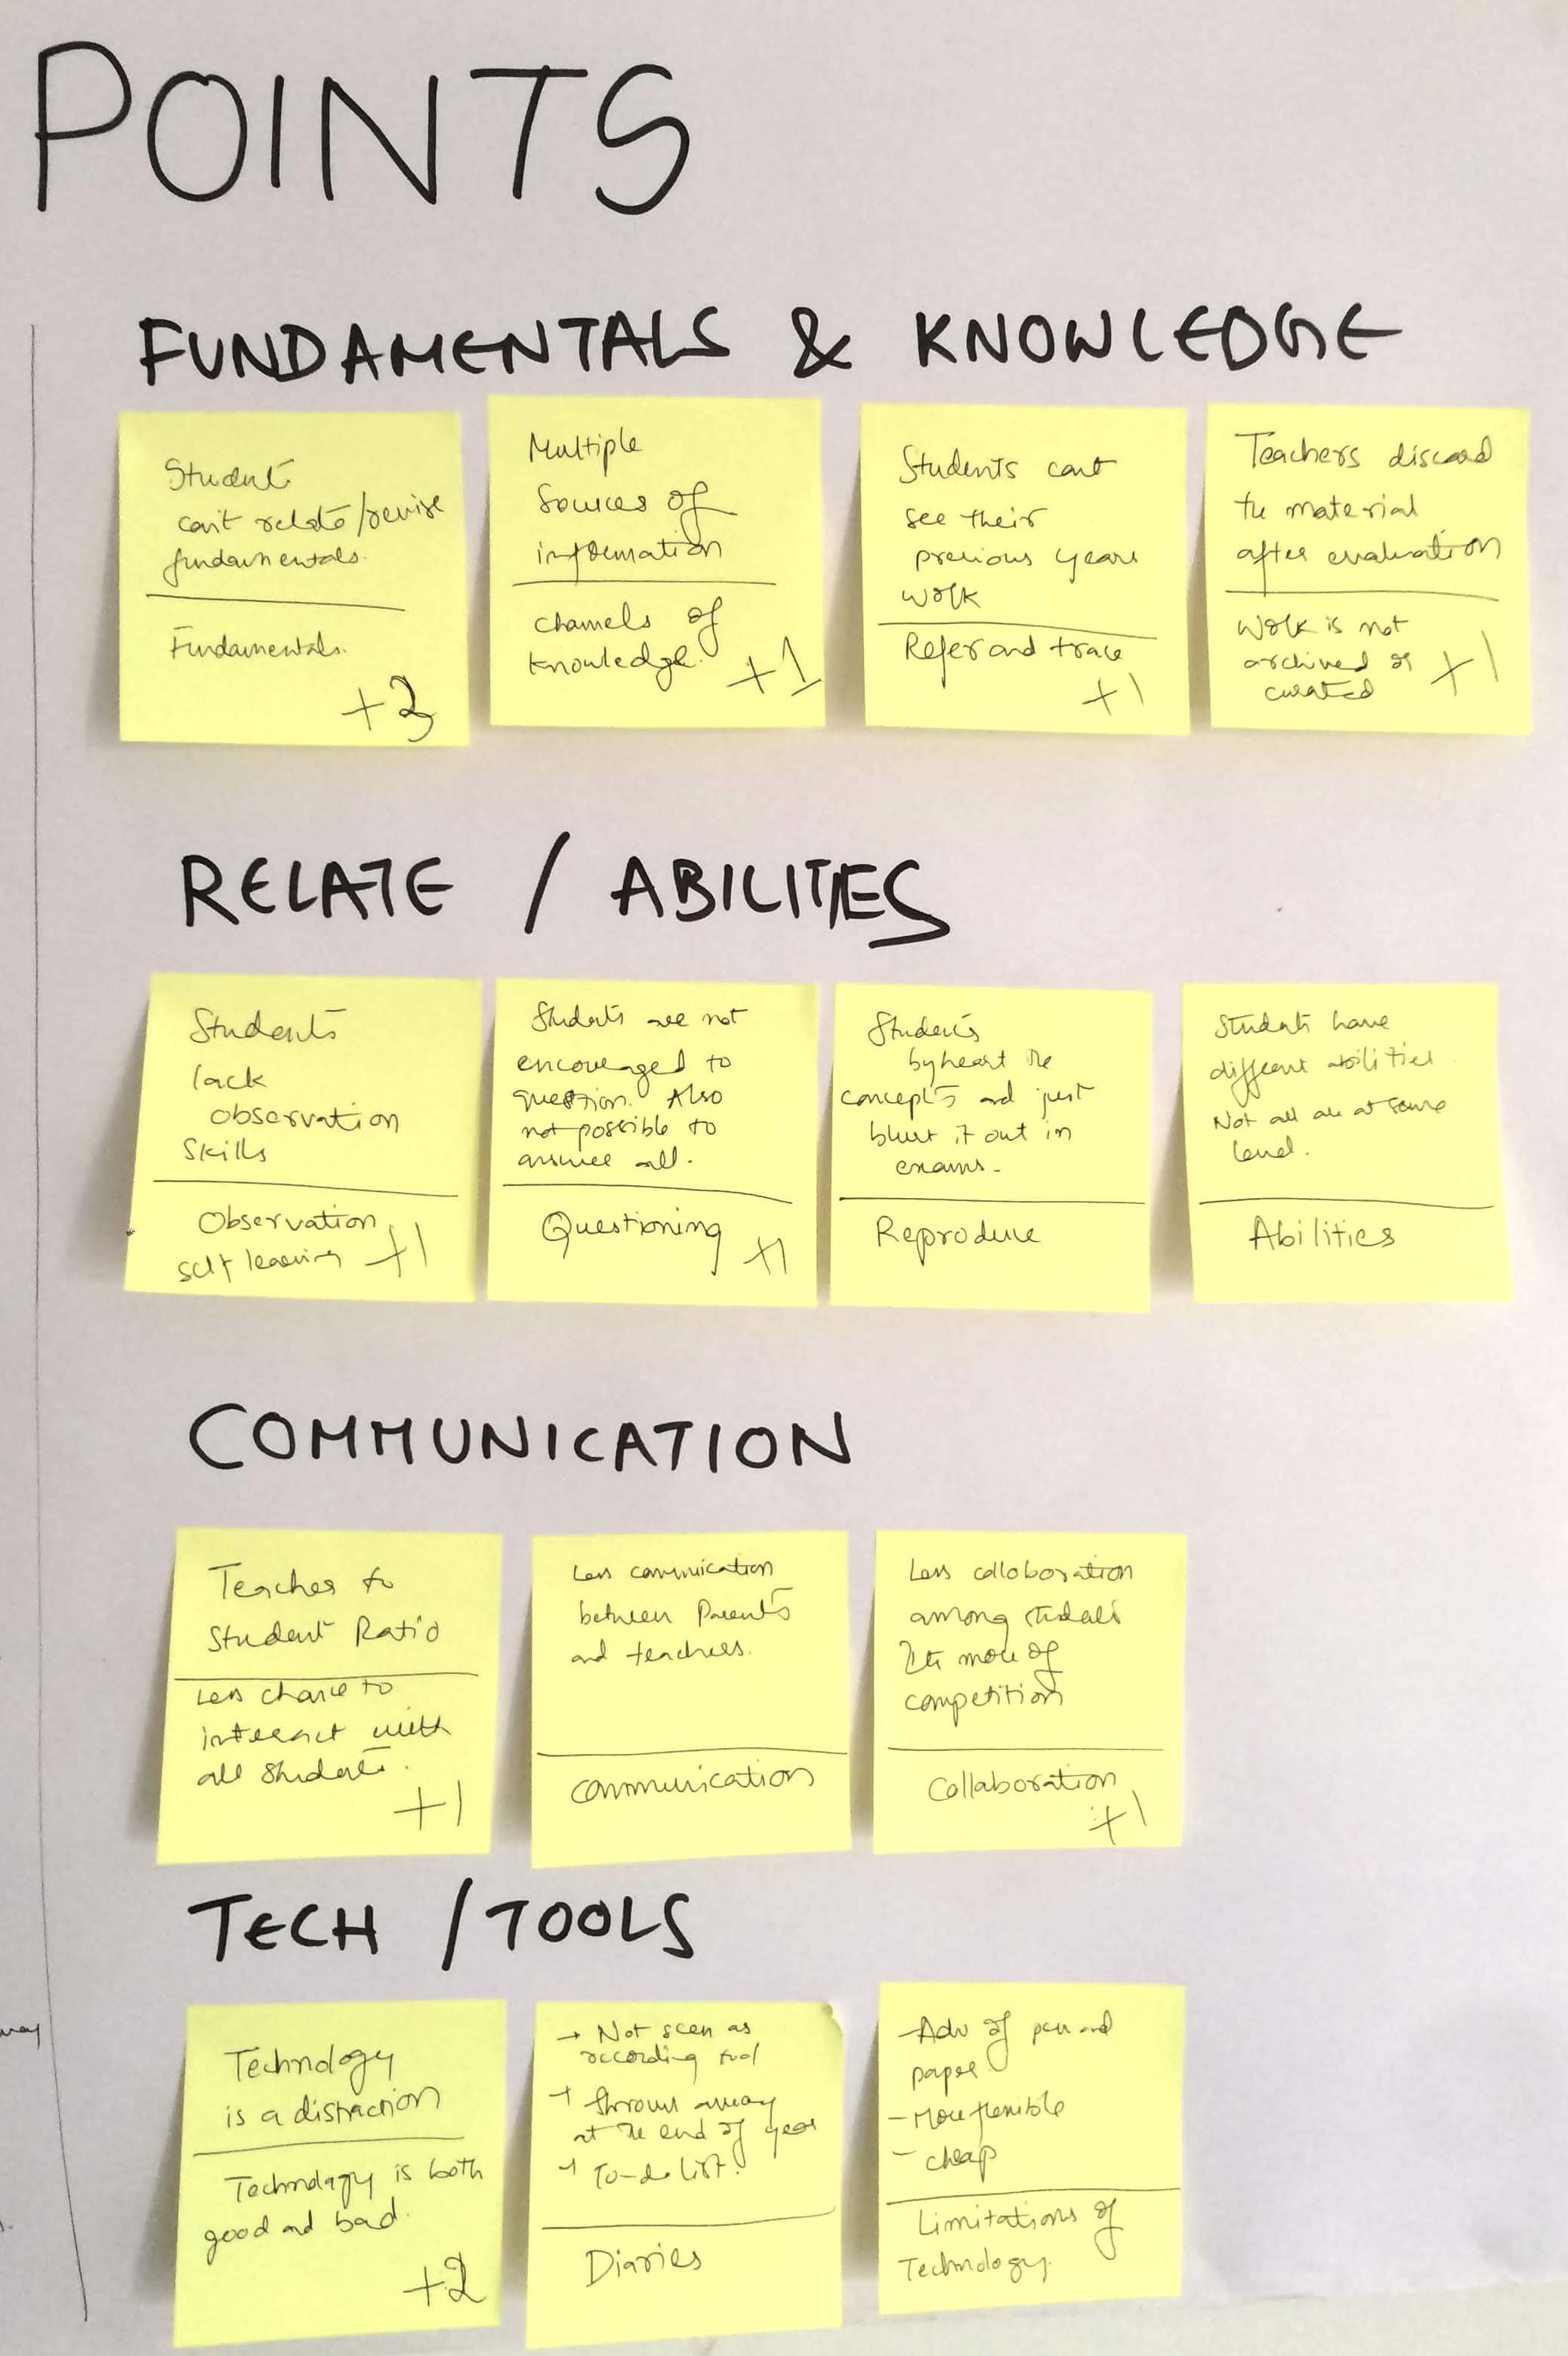 POINTS
FUNDAMENTALS & KNOWLEDGE
Student
can't relate/revise
fundamentals.
Fundamentals.
+3
Multiple
Sources of
information
channels of
knowledge.
+1
Students cant
see their
previous years
work
Refer and trace
+1
Teachers discard
the material
after evaluation
Work is not
archived or
curated
+1
RELATE / ABILITIES
Students
lack
observation
skills
Observation
self learning
+1
Students are not
encouraged to
question. Also
not possible to
answer all.
Questioning
+1
Students
byheart the
concepts and just
blurt it out in
exams.
Reproduce
Students have
different abilities
Not all are at same
level.
Abilities
COMMUNICATION
Teacher to
Student Ratio
Less chance to
interact with
all students.
+1
Less communication
between Parents
and teachers.
communication
Less colloboration
among students
more of
competition
Collaboration
+1
TECH / TOOLS
Technology
is a distraction
Technology is both
good and bad.
+2
→ Not seen as
recording tool
→ thrown away
at the end of year
→ To-do list.
Diaries
- Adv of pen and
paper
- More flexible
- cheap
Limitations of
Technology.